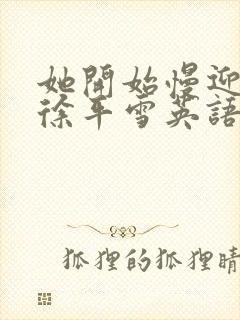 她開始慢迎
徐平雪英語
狐狸的狐狸晴